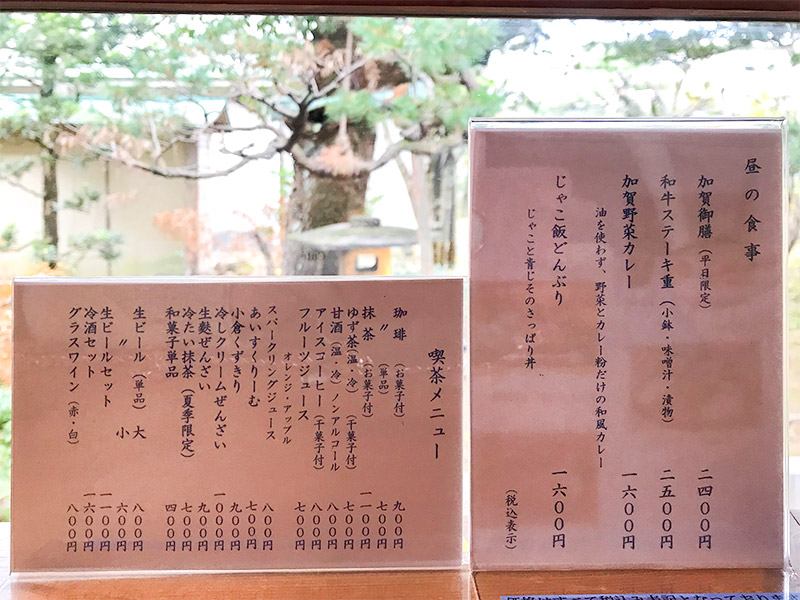 昼の食事
加賀御膳（平日限定） 二四〇〇円
和牛ステーキ重（小鉢・味噌汁・漬物） 二五〇〇円
加賀野菜カレー 一六〇〇円
油を使わず、野菜とカレー粉だけの和風カレー
じゃこ飯どんぶり 一六〇〇円
じゃこと青じそのさっぱり丼
（税込表示）
喫茶メニュー
珈琲（お菓子付） 九〇〇円
〃（単品） 七〇〇円
抹茶（お菓子付） 一一〇〇円
ゆず茶（温・冷）（干菓子付） 七〇〇円
甘酒（温・冷）ノンアルコール 八〇〇円
アイスコーヒー（干菓子付） 八〇〇円
フルーツジュース 七〇〇円
オレンジ・アップル
スパークリングジュース 八〇〇円
あいすくりーむ 七〇〇円
小倉くずきり 九〇〇円
冷しクリームぜんざい 一〇〇〇円
生麩ぜんざい 九〇〇円
冷たい抹茶（夏季限定） 七〇〇円
和菓子単品 四〇〇円
生ビール（単品）大 八〇〇円
〃 小 六〇〇円
生ビールセット 一一〇〇円
冷酒セット 一六〇〇円
グラスワイン（赤・白） 八〇〇円